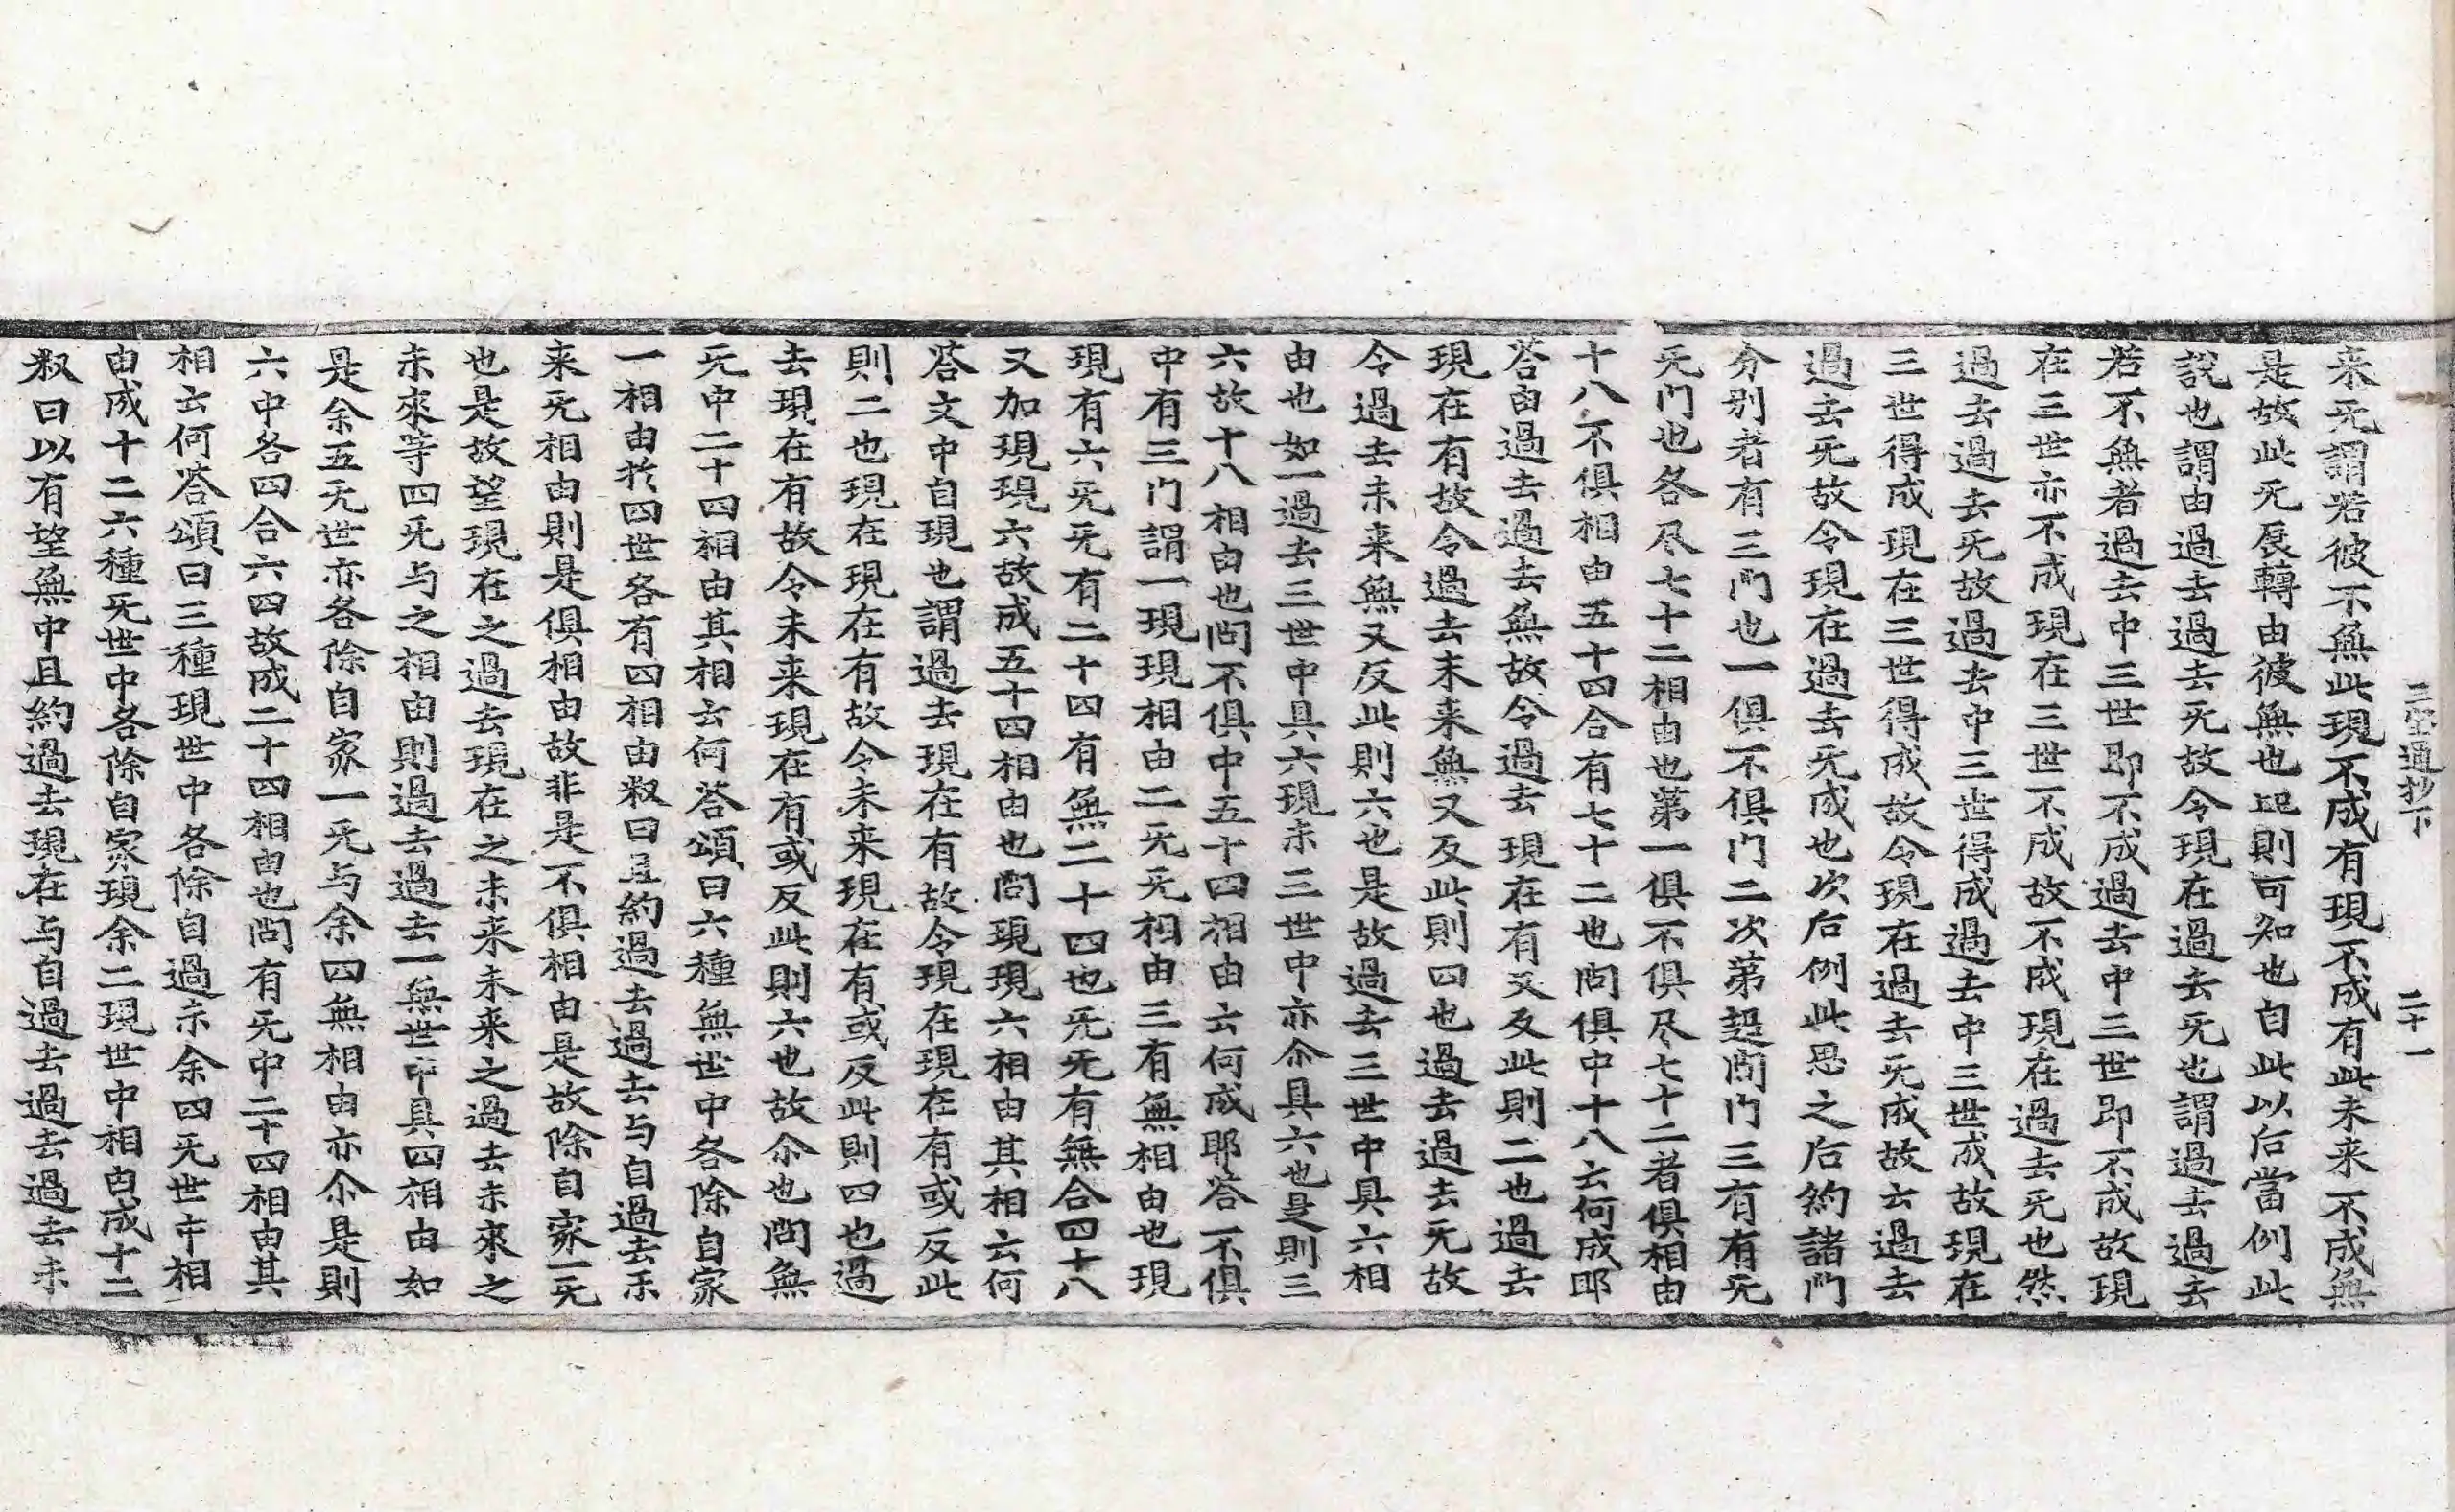 三宝通抄下　二十一
来旡謂若彼不無此現不成有現不成有此未来不成無
是故此旡展轉由彼無也起則可知也自此以后當例此
說也謂由過去過去旡故令現在過去旡也謂過去過去
若不無者過去中三世即不成過去中三世即不成故現
在三世亦不成現在三世不成故不成現在過去旡也然
過去過去旡故過去中三世得成過去中三世成故現在
三世得成現在三世得成故令現在過去旡成故云過去
過去旡故令現在過去旡成也次后例此思之后約諸門
分別者有三門也一俱不俱門二次第超間門三有有旡
旡門也各尽七十二相由也第一俱不俱尽七十二者俱相由
十八不俱相由五十四合有七十二也問俱中十八云何成耶
答由過去過去無故令過去現在有又反此則二也過去
現在有故令過去末来無又反此則四也過去過去旡故
令過去未来無又反此則六也是故過去三世中具六相
由也如一過去三世中具六現未三世中亦尒具六也是則三
六故十八相由也問不俱中五十四相由云何成耶答不俱
中有三門謂一現現相由二旡旡相由三有無相由也現
現有六旡旡有二十四有無二十四也旡旡有無合四十八
又加現現六故成五十四相由也問現現六相由其相云何
答文中自現也謂過去現在有故令現在現在有或反此
則二也現在現在有故令未来現在有或反此則四也過
去現在有故令未来現在有或反此則六也故尒也問無
旡中二十四相由其相云何答頌曰六種無世中各除自家
一相由於四世各有四相由釈曰且約過去過去与自過去未
来旡相由則是俱相由故非是不俱相由是故除自家一旡
也是故望現在之過去現在之未来未来之過去未來之
未來等四旡与之相由則過去過去一無世中具四相由如
是余五旡世亦各除自家一旡与余四無相由亦尒是則
六中各四合六四故成二十四相由也問有旡中二十四相由其
相云何答頌曰三種現世中各除自過未余四旡世中相
由成十二六種旡世中各除自家現余二現世中相由成十二
釈曰以有望無中且約過去現在与自過去過去過去未